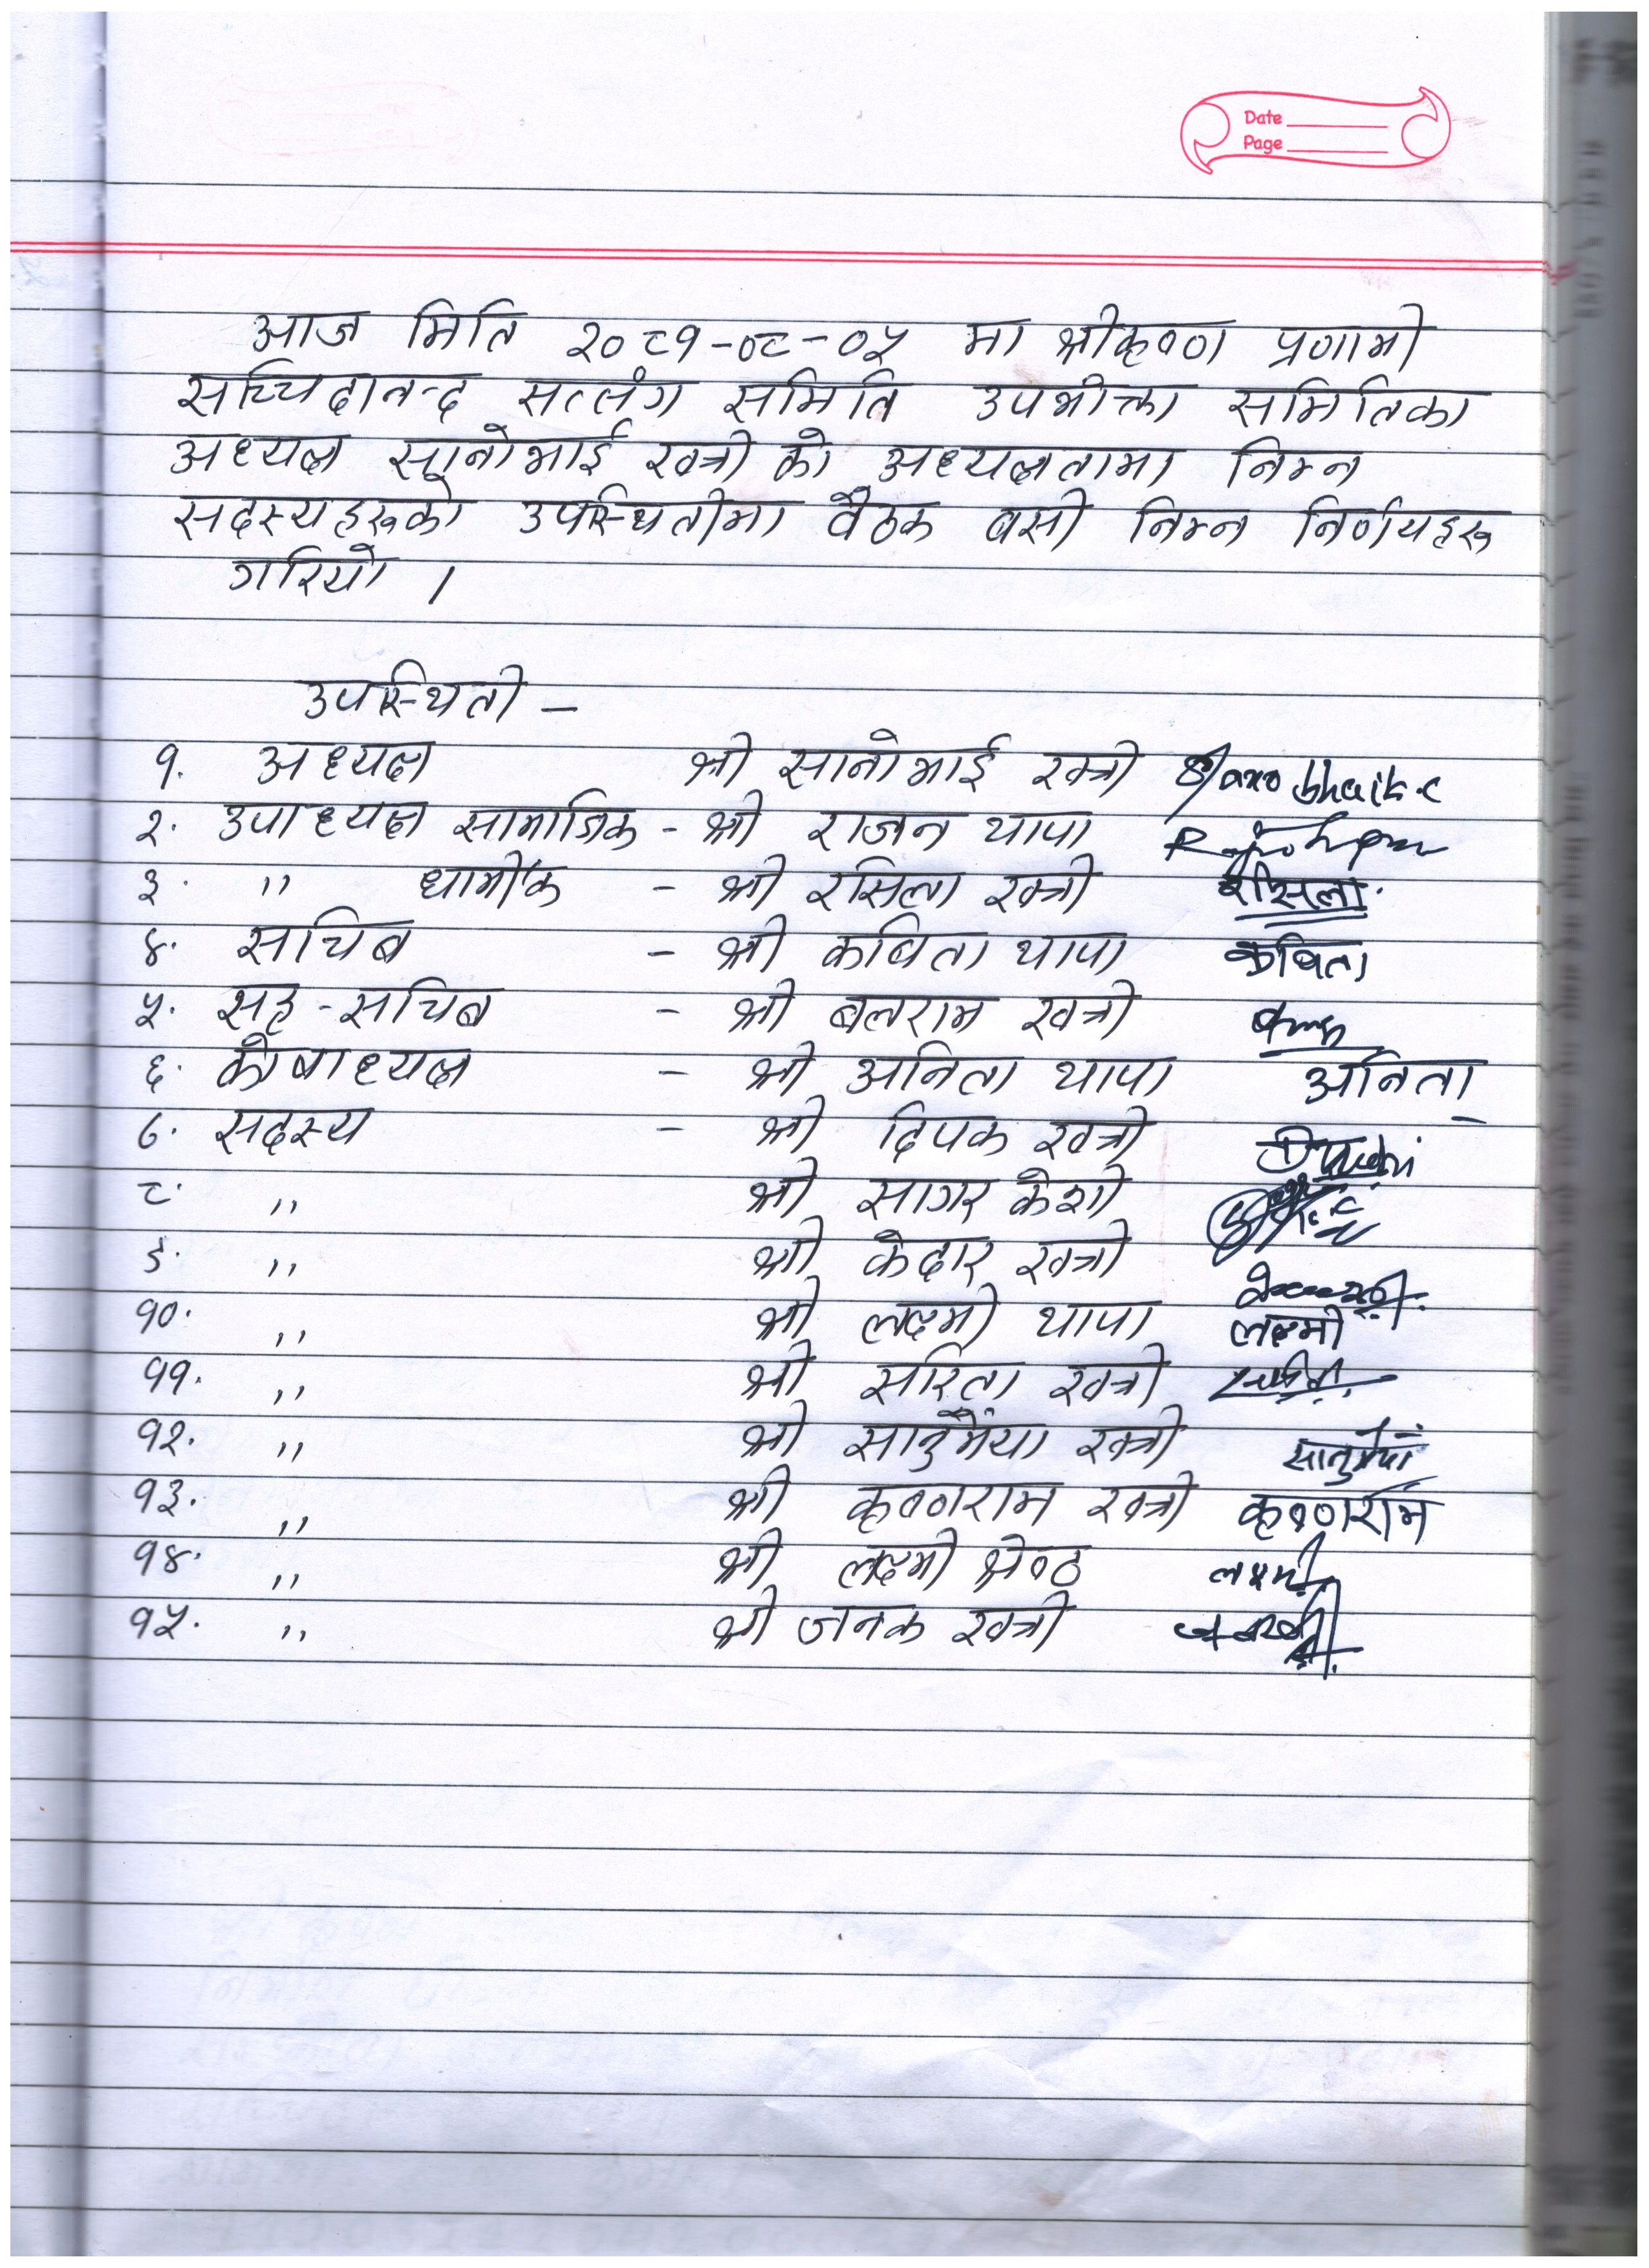 Date
Page
आज मिति २०८१-०८-०५ मा श्रीकृष्ण प्रणामी
सच्चिदानन्द सत्संग समिति उपभोक्ता समितिका
अध्यक्ष सानोभाई खत्री को अध्यक्षतामा निम्न
सदस्यहरुको उपस्थितीमा वैठक बसी निम्न निर्णयहरु
गरियो ।
उपस्थिती -
१. अध्यक्ष श्री सानोभाई खत्री
२. उपाध्यक्ष सामाजिक - श्री राजन थापा
३. " धार्मीक - श्री रसिला खत्री रसिला
४. सचिब - श्री कविता थापा कविता
५. सह-सचिब - श्री बलराम खत्री
६. कोषाध्यक्ष - श्री अनिता थापा अनिता
७. सदस्य - श्री दिपक खत्री
८. " श्री सागर केशी
९. " श्री केदार खत्री
१०. " श्री लक्ष्मी थापा लक्ष्मी
११. " श्री सरिता खत्री
१२. " श्री सानुमैया खत्री सानुमैया
१३. " श्री कृष्णराम खत्री कृष्णराम
१४. " श्री लक्ष्मी श्रेष्ठ लक्ष्मी
१५. " श्री जनक खत्री